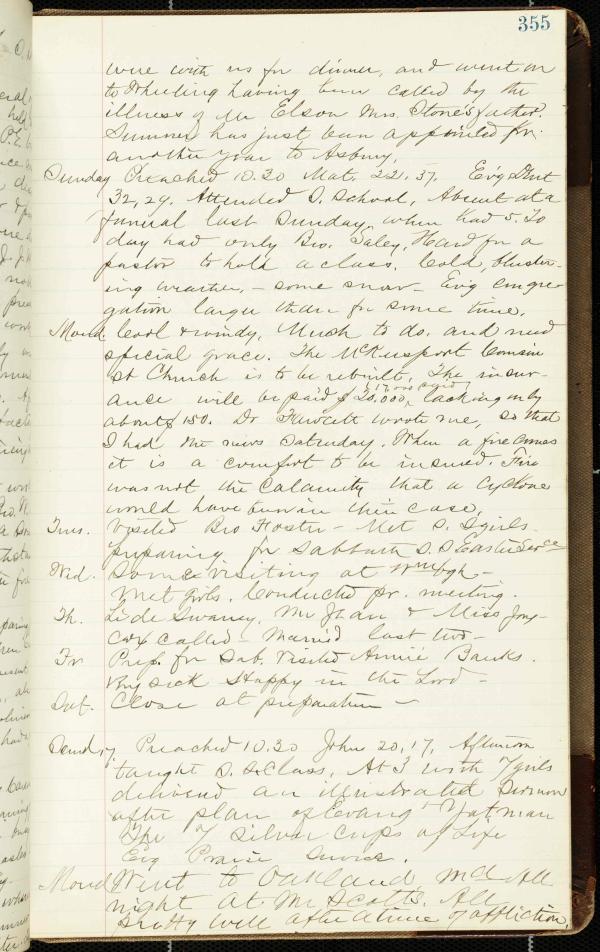 355
were with us for dinner, and went on
to Wheeling having been called by the
illness of Mr Elson Mrs. Stone's father.
Sumner has just been appointed for
another year to Asbury.
Sunday Preached 10.30 Mat. 22.37. Ev'g Deut
32,29. Attended S. School. Absent at a
funeral last Sunday, when had 5. To
day had only Bro. Daley. Hard for a
pastor to hold a class. Cold, bluster-
ing weather, - some snow - Ev'g congre-
gation larger than for some time.
Mond. Cool & windy. Much to do, and need
special grace. The McKeesport Cousin
St Church is to be rebuilt. The insur-
ance will be paid $20,000, lacking only
about $150. Dr Fawcett wrote me, so that
I had the news Saturday. When a fire comes
it is a comfort to be insured. Fire
was not the Calamity that a Cyclone
would have been in this case.
Tues. Visited Bro Foster - Met S. S girls
preparing for Sabbath S. S Easter Serce
Wed. Some visiting at
Met girls. Conducted pr. meeting.
Th. Lide Swaney, Mr & Miss
called - Married last two -
Fr Prep. for Sab. Visited Annie Banks.
Very sick Happy in the Lord -
Sat. Close at preparation -
Sunday Preached 10.30 John 20,17. Afternoon
taught S. S. Class. At 3 with 7 girls
delivered an illustrated Sermon
after plan of Evang't Yatman
The 7 Silver Cups of Life
Ev'g Praise Service.
Mond Went to Oakland Md All
night at Mr Scotts. All
pretty well after a time of affliction.